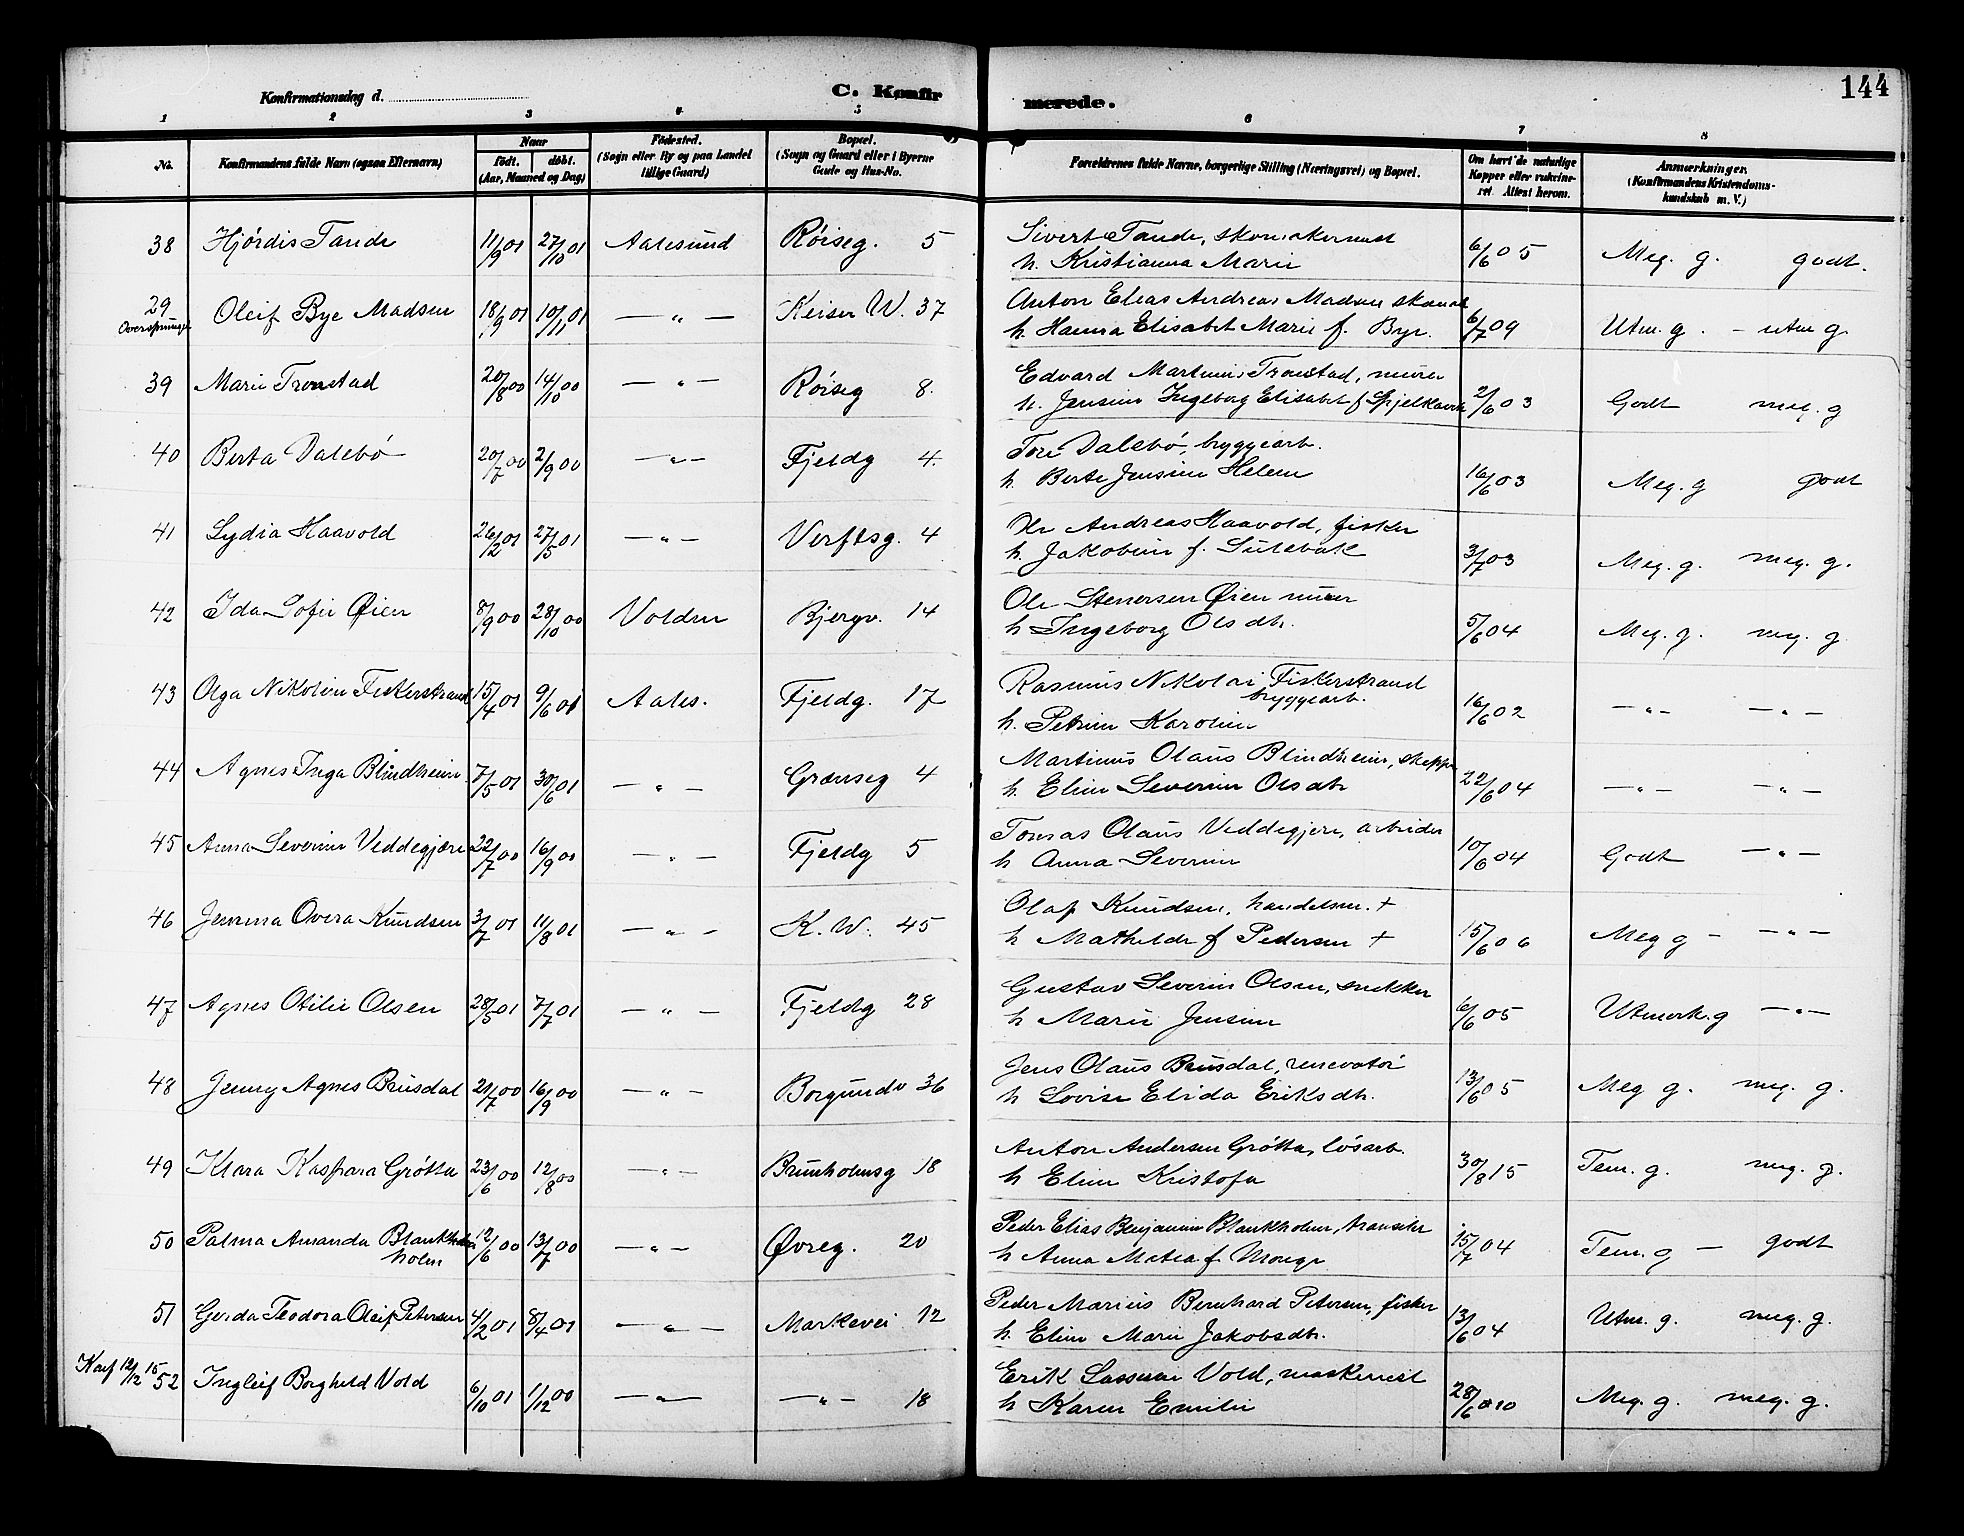 144
Konfirmationsdag d.
C. Konfirmerede.
1 2 3 4 5 6 7 8
No. Konfirmandens fulde Navn (ogsaa Efternavn) Naar født. døbt. (Aar, Maaned og Dag) Fødested. (Sogn eller By og paa Landet tillige Gaard) Bopæl. (Sogn og Gaard eller i Byerne Gade og Hus-No. Forældrenes fulde Navne, borgerlige Stilling (Næringsvei) og Bopæl. Om havt de naturlige Kopper eller vakcineret. Attest herom. Anmærkninger. (Konfirmandens Kristendomskundskab m. V.)
38 Hjördis Tande 11/9 01 27/10 01 Aalesund Röiseg. 5 Sivert Tande, 6/6 05 Meg. g. godt.
h. Kristianna Marie
29 Oversprunget Oleif Bye Madsen 18/9 01 10/11 01 — " — Keiser W. 37 Anton Elias Andreas Madsen 6/7 09 Utm. g. – utm g.
h. Hanna Elisabet Marie f. Bye.
39 Marie Tronstad 20/8 00 14/10 00 — " — Röiseg 8. Edvard Martinus Tronstad, murer 2/6 03 Godt meg. g
h. Jensine Ingeborg Elisabet f Spjelkavik
40 Berta Dalebö 20/7 00 2/9 00 — " — Fjeldg 4. Tore Dalebö, bryggearb. 16/6 03 Meg. g godt
h. Berte Jensine Helene
41 Lydia Haavold 26/2 01 27/5 01 — " — Verftsg. 4 Ole Andreas Haavold, fisker 3/7 03 Meg. g. meg. g.
h. Jakobine f. Sulebak
42 Ida Sofie Øien 8/9 00 28/10 00 Volden Bjergv. 14 Ole Stenersen Øien murer 5/6 04 Meg. g. meg. g.
h Ingeborg Olsdtr.
43 Olga Nikoline Fiskerstrand 15/4 01 9/6 01 Aales. Fjeldg. 17 Rasmus Nikolai Fiskerstrand bryggearb. 16/6 02 — " — — " —
h. Petrine Karoline
44 Agnes Inga Blindheim 7/5 01 30/6 01 — " — Grænseg 4 Martinus Olaus Blindheim, 22/6 04 — " — — " —
h. Eline Severine Olsdtr
45 Anna Severine Veddegjære 22/7 00 16/9 00 — " — Fjeldg 5 Tomas Olaus Veddegjere, arbeider 10/6 04 Godt — " —
h Anna Severine
46 Jemima Overa Knudsen 3/7 01 11/8 01 — " — K. W. 45 Olaf Knudsen, handelsm. + 15/6 06 Meg g – — " —
h Mathilde f Pedersen +
47 Agnes Otilie Olsen 28/5 01 7/7 01 — " — Fjeldg 28 Gustav Severin Olsen, snekker 6/6 05 Utmerk. g — " —
h Marie Jensine
48 Jenny Agnes Brusdal 21/7 00 16/9 00 — " — Borgundv 36 Jens Olaus Brusdal, renovatör 13/6 05 Meg g. meg. g.
h Lovise Elida Eriksdtr.
49 Klara Kaspara Grötta 23/6 00 12/8 00 — " — Brunholmsg 18 Anton Andersen Grötta, lösarb. 30/8 15 Tem. g. meg. g.
h Eline Kristofa
50 Palma Amanda Blankholm 12/6 00 13/7 00 — " — Øvreg. 20 Peder Elias Benjamin Blankholm, 15/7 04 Tem. g – godt
h Anna Matea f Monge
51 Gerda Teodora Oleif Petersen 4/2 01 8/4 01 — " — Markevei 12 Peder Marius Bernhard Petersen, fisker 13/6 04 Utm. g. meg. g.
h. Eline Marie Jakobsdtr.
Konf 12/12 15 52 Ingleif Borghild Vold 6/10 01 1/12 00 — " — — " — 18 Erik Vold, maskinist 28/6 010 Meg. g. meg. g.
h Karen Emilie